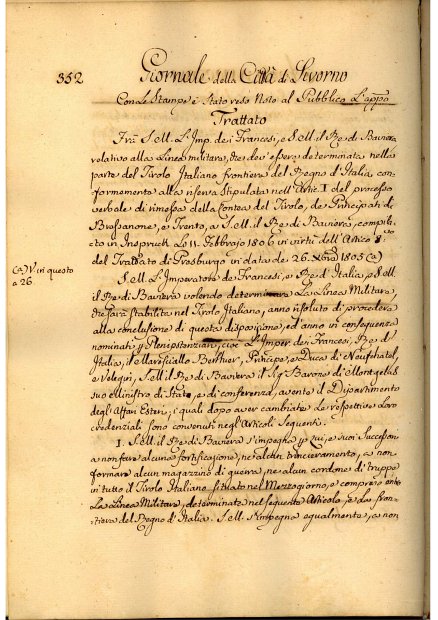 352 Giornale della Città di Livorno
Con Le Stampe è Stato reso Noto al Pubblico L'appo
Trattato
Frà S. M. L'Imp. dei Francesi, e S. M. il Rè di Baviera
relativo alla Linea militare, che dev'essere determinata nella
parte del Tirolo Italiano frontiera del Regno d'Italia, con-
formemente alla riserva Stipulata nell'Artic. I del processo
verbale di rimessa della Contea del Tirolo, de Principati di
Bressanone, e Trento, a S. M. il Rè di Baviera, compila-
to in Inspruch Lo 11. Febbrajo 1806 in virtù dell'Artico 8.
del Trattato di Presburgo in data de 26. Xbre 1805 (a)
(a) V. in questo
a 26
S. M. L'Imperatore de Francesi, e Rè d'Italia, e S. M.
il Rè di Baviera volendo determinare La Linea Militare,
che sarà stabilita nel Tirolo Italiano, anno risoluto di procedere
alla conclusione di questa disposizione, ed anno in conseguenza
nominati p Plenipotenziari, cioè L'Imper. dei Francesi, Rè d'
Italia, il Maresciallo Berthier, Principe, e Duca di Neufchatel,
e Velegin, S. M. il Rè di Baviera il Sig. Barone di Montgelas
suo Ministro di Stato, e di conferenza, avente il Dipartimento
degl'Affari Esteri, i quali dopo aver cambiate Le respettive Loro
credenziali sono convenuti negl'Articoli Seguenti.
I. S. M. il Rè di Baviera s'impegna p lui, e suoi Successori
a non fare alcuna fortificazione, ne altri trinceramento, a non
formare alcun magazzino di guerra, ne alcun cordone di truppe
in tutto il Tirolo Italiano situato nel Mezzogiorno, e compreso entro
La Linea Militare, determinata nel seguente Articolo, e La fron-
tiera del Regno d'Italia. S. M. s'impegna egualmente, a non